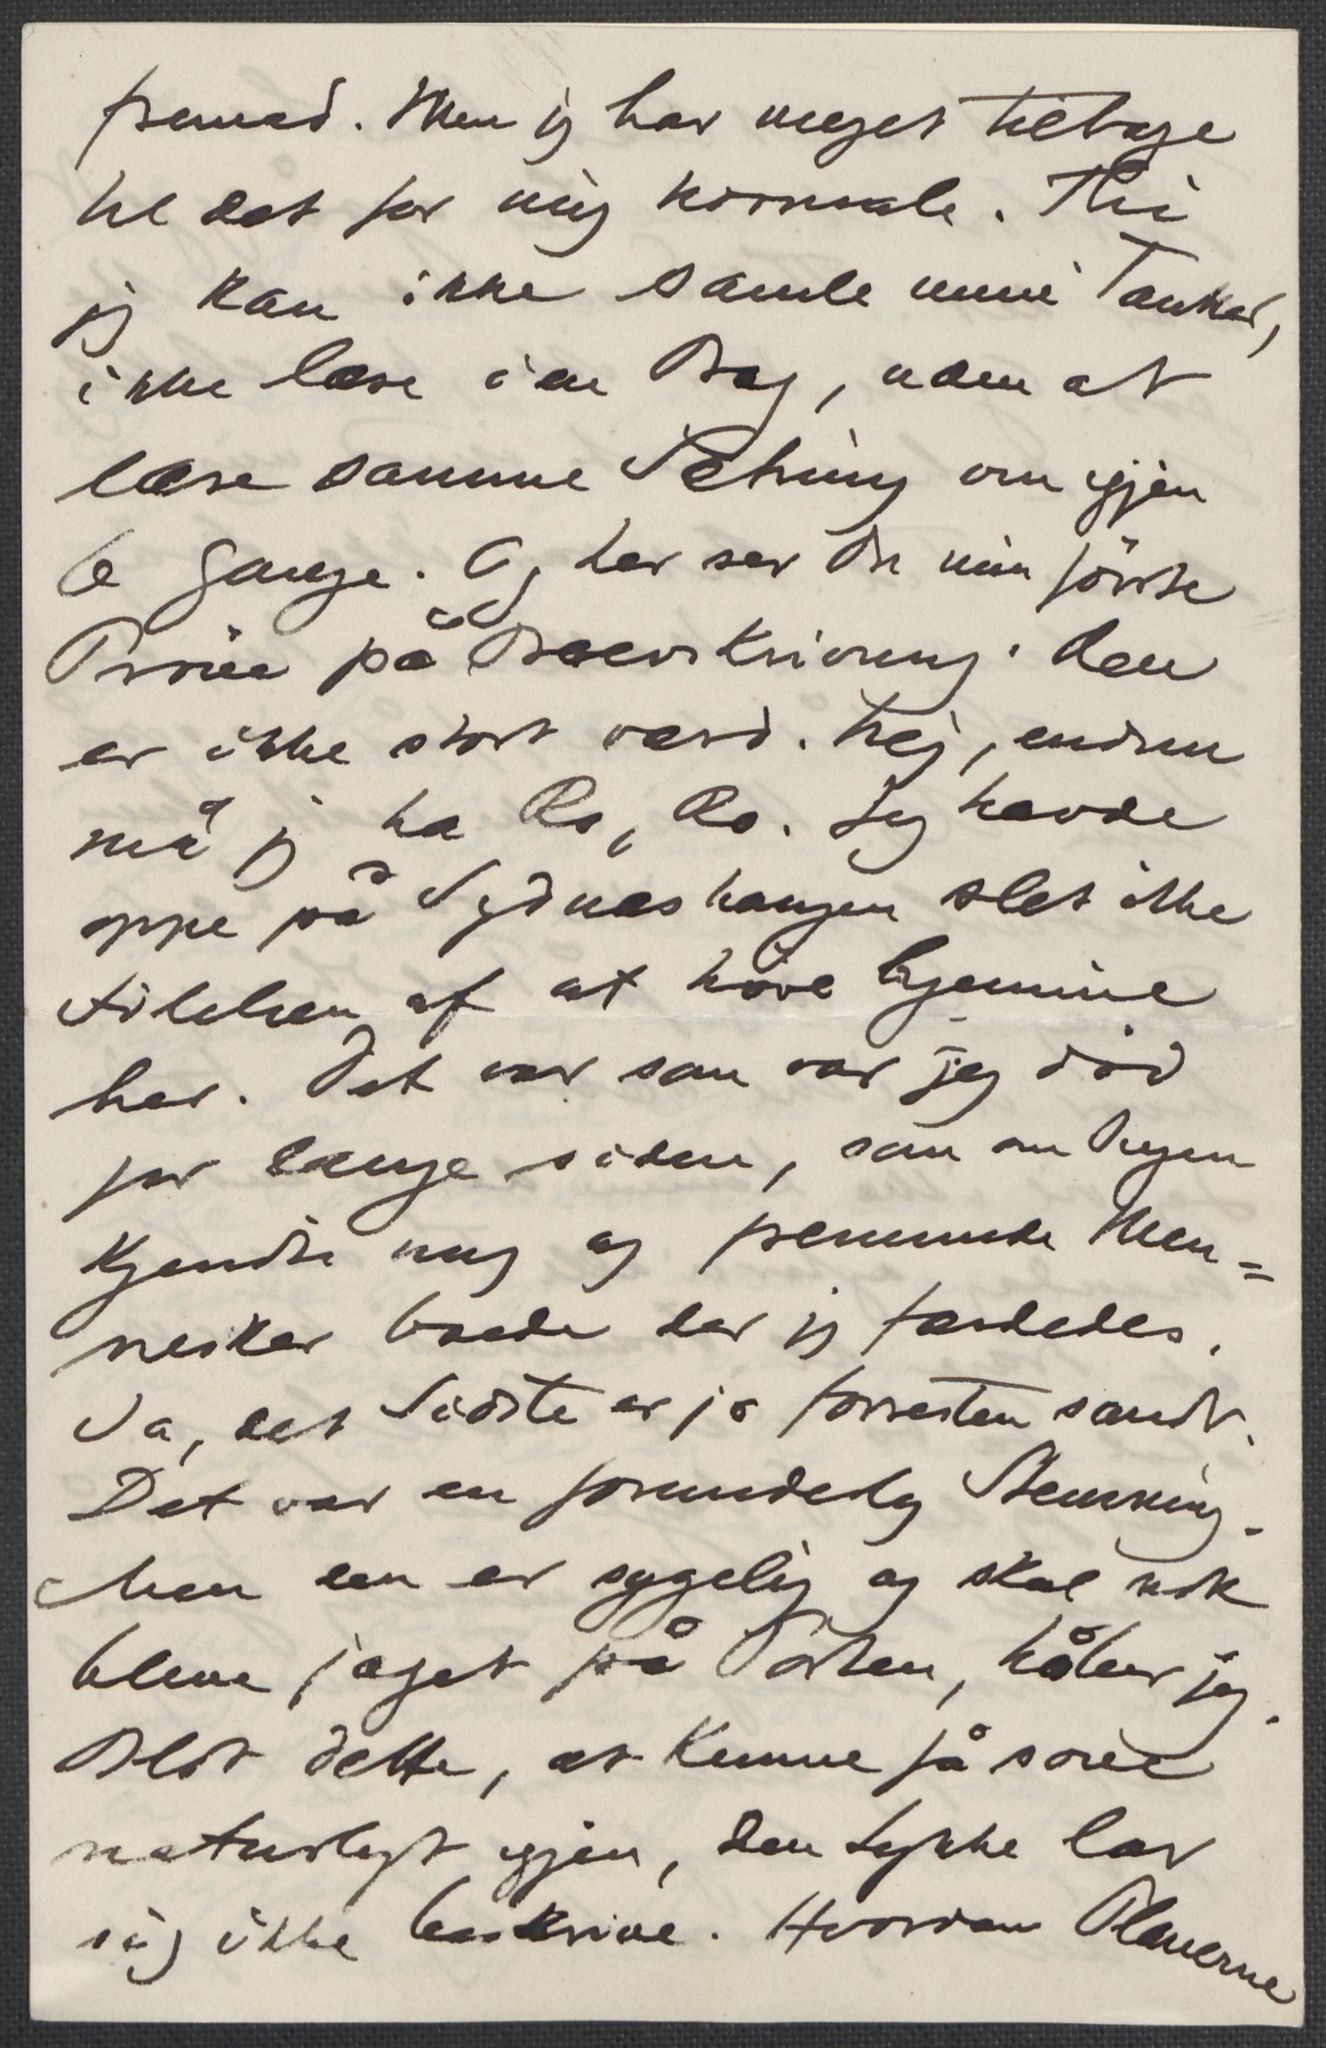 fremad. Men jeg har meget tilbage
til det for mig normale. Thi
jeg kan ikke samle mine Tanker,
ikke læse i en Bog, uden at
læse samme Sætning om igjen
6 Gange. Og her ser Du min förste
Pröve på Brevskrivning. Den
er ikke stort værd. Nej, endnu
må jeg ha Ro, Ro. Jeg havde
oppe på Sydneshaugen slet ikke
Følelsen af at høre hjemme
her. Det var som var jeg död
for længe siden, som om Ingen
kjendte mig og fremmede Men=
nesker boede der jeg færdedes.
Ja, det Sidste er jo forresten sandt.
Det var en forunderlig Stemning.
Men den er sygelig og skal nok
blive jaget på Porten, håber jeg.
Blot dette, at kunne få sove
naturligt igjen, den Lykke lar
sig ikke beskrive. Hvordan Planerne